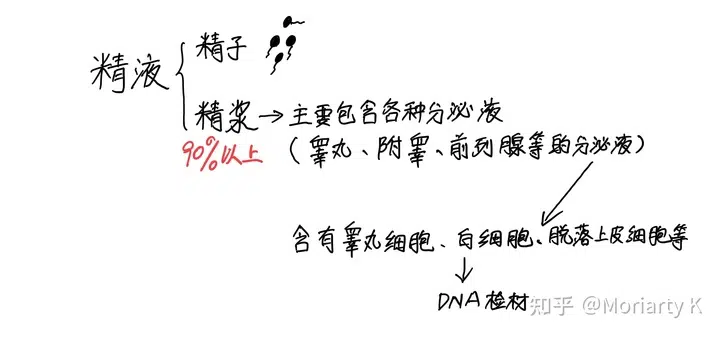 精液
精子
精浆→主要包含各种分泌液
90%以上
(睾丸、附睾、前列腺等的分泌液)
含有睾丸细胞、白细胞、脱落上皮细胞等
DNA检材
知乎 @Moriarty K